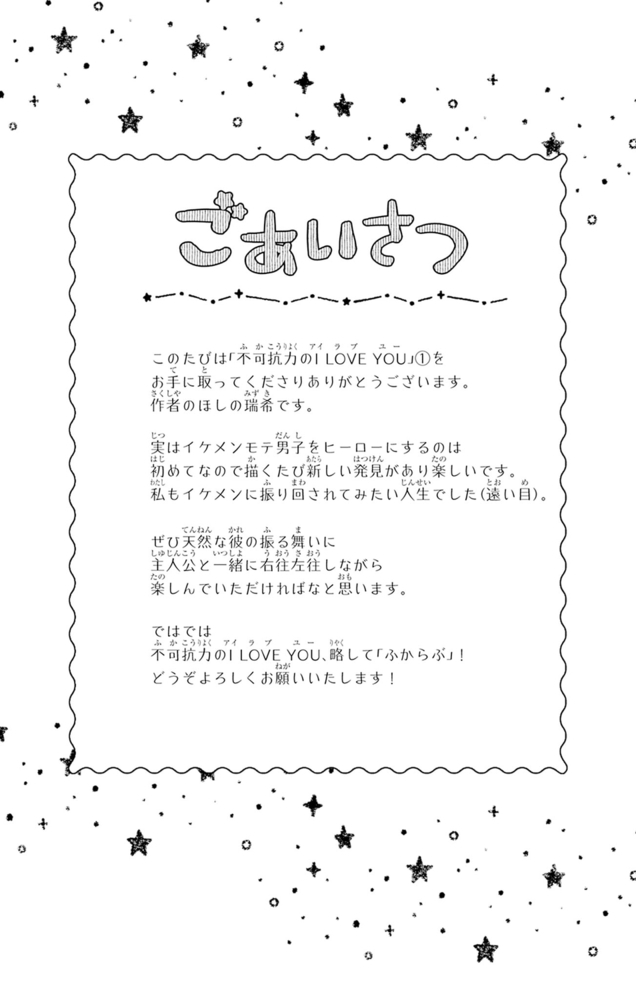 ごあいさつ
このたびは「不可抗力のI LOVE YOU」①を
お手に取ってくださりありがとうございます。
作者のほしの瑞希です。
実はイケメンモテ男子をヒーローにするのは
初めてなので描くたび新しい発見があり楽しいです。
私もイケメンに振り回されてみたい人生でした(遠い目)。
ぜひ天然な彼の振る舞いに
主人公と一緒に右往左往しながら
楽しんでいただければなと思います。
ではでは
不可抗力のI LOVE YOU、略して「ふからぶ」!
どうぞよろしくお願いいたします!